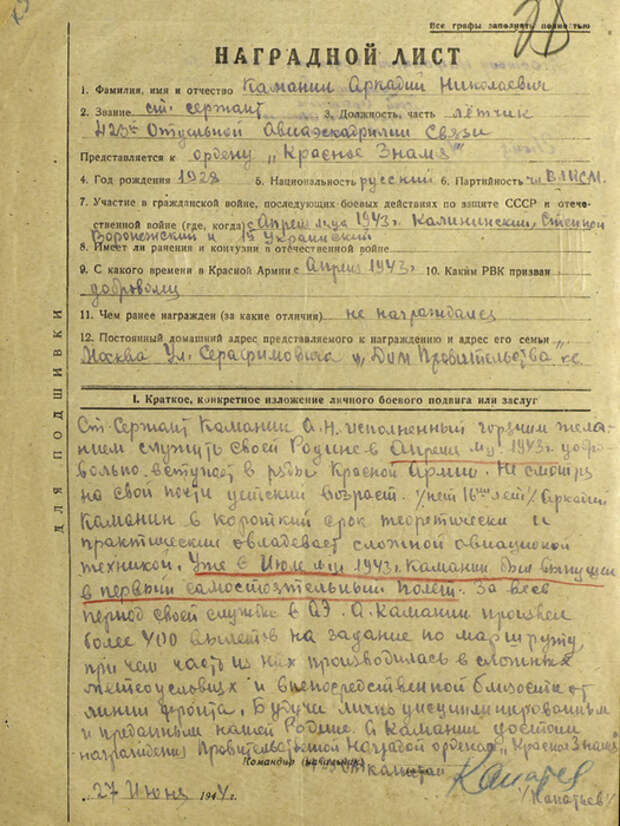 Все графы заполнять полностью
28
НАГРАДНОЙ ЛИСТ
1. Фамилия, имя и отчество Каманин Аркадий Николаевич
2. Звание ст. сержант 3. Должность, часть лётчик
423й Отдельной Авиаэскадрилии Связи
Представляется к ордену „Красное Знамя"
4. Год рождения 1928 5. Национальность русский 6. Партийность чл. ВЛКСМ.
7. Участие в гражданской войне, последующих боевых действиях по защите СССР и отече-
ственной войне (где, когда) с Апреля м-ца 1943 г. Калининский, Степной
Воронежский и 1й Украинский
8. Имеет ли ранения и контузии в отечественной войне
9. С какого времени в Красной Армии с Апреля 1943 г 10. Каким РВК призван
доброволец
11. Чем ранее награжден (за какие отличия) не награждался
12. Постоянный домашний адрес представляемого к награждению и адрес его семьи
Москва Ул. Серафимовича Дом Правительства кв.
ДЛЯ ПОДШИВКИ
I. Краткое, конкретное изложение личного боевого подвига или заслуг
Ст. Сержант Каманин А.Н. исполненный горячим жела-
нием служить своей Родине в Апреле м-ц 1943 г добро-
вольно вступает в ряды Красной Армии. Не смотря
на свой почти детский возраст. /нет 16ти лет/ Аркадий
Каманин в короткий срок теоретически и
практически овладевает сложной авиационой
техникой. Уже в Июле м-це 1943 г. Каманин был выпущен
в первый самостоятельный полёт. За весь
период своей службы в АЭ. А. Каманин произвел
более 400 вылетов на задание по маршруту,
при чем часть из них производилась в сложных
метеоусловиях и в непосредственной близости от
линии фронта. Будучи лично дисциплинированным
и преданным нашей Родине. А Каманин достоин
награждения Правительственной Наградой орденом „Красное Знамя"
Командир (начальник)
капитан
/Капатьев/
27 Июня 1944 г.